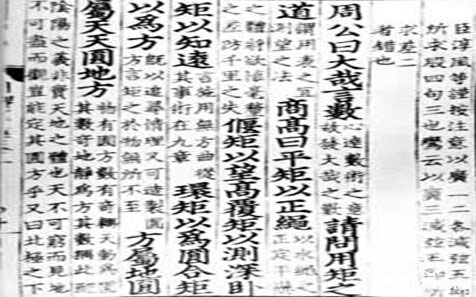 臣淳風等謹按注意以廣一 各減弦五即
所求股四句三也鸞云以廣三 減弦五即所
求差二
者錯也
周公曰大哉言數心達數術之意故發大哉之歎請問用矩之
道謂用表之宜測望之法商高曰平矩以正繩以水繩之正定平懸
之體將欲慎毫釐之差防千里之失偃矩以望高覆矩以測深臥
矩以知遠言施用無方曲從其事術在九章環矩以為圓合矩
以為方既以追尋情理又可造製圓方言矩之於物無所不至方屬地圓
屬天天圓地方物有圓方數有奇耦天動為圓其數奇地靜為方其數耦此配
陰陽之義非實天地之體也天不可窮而見地
不可盡而觀豈能定其圓方乎又曰北極之下